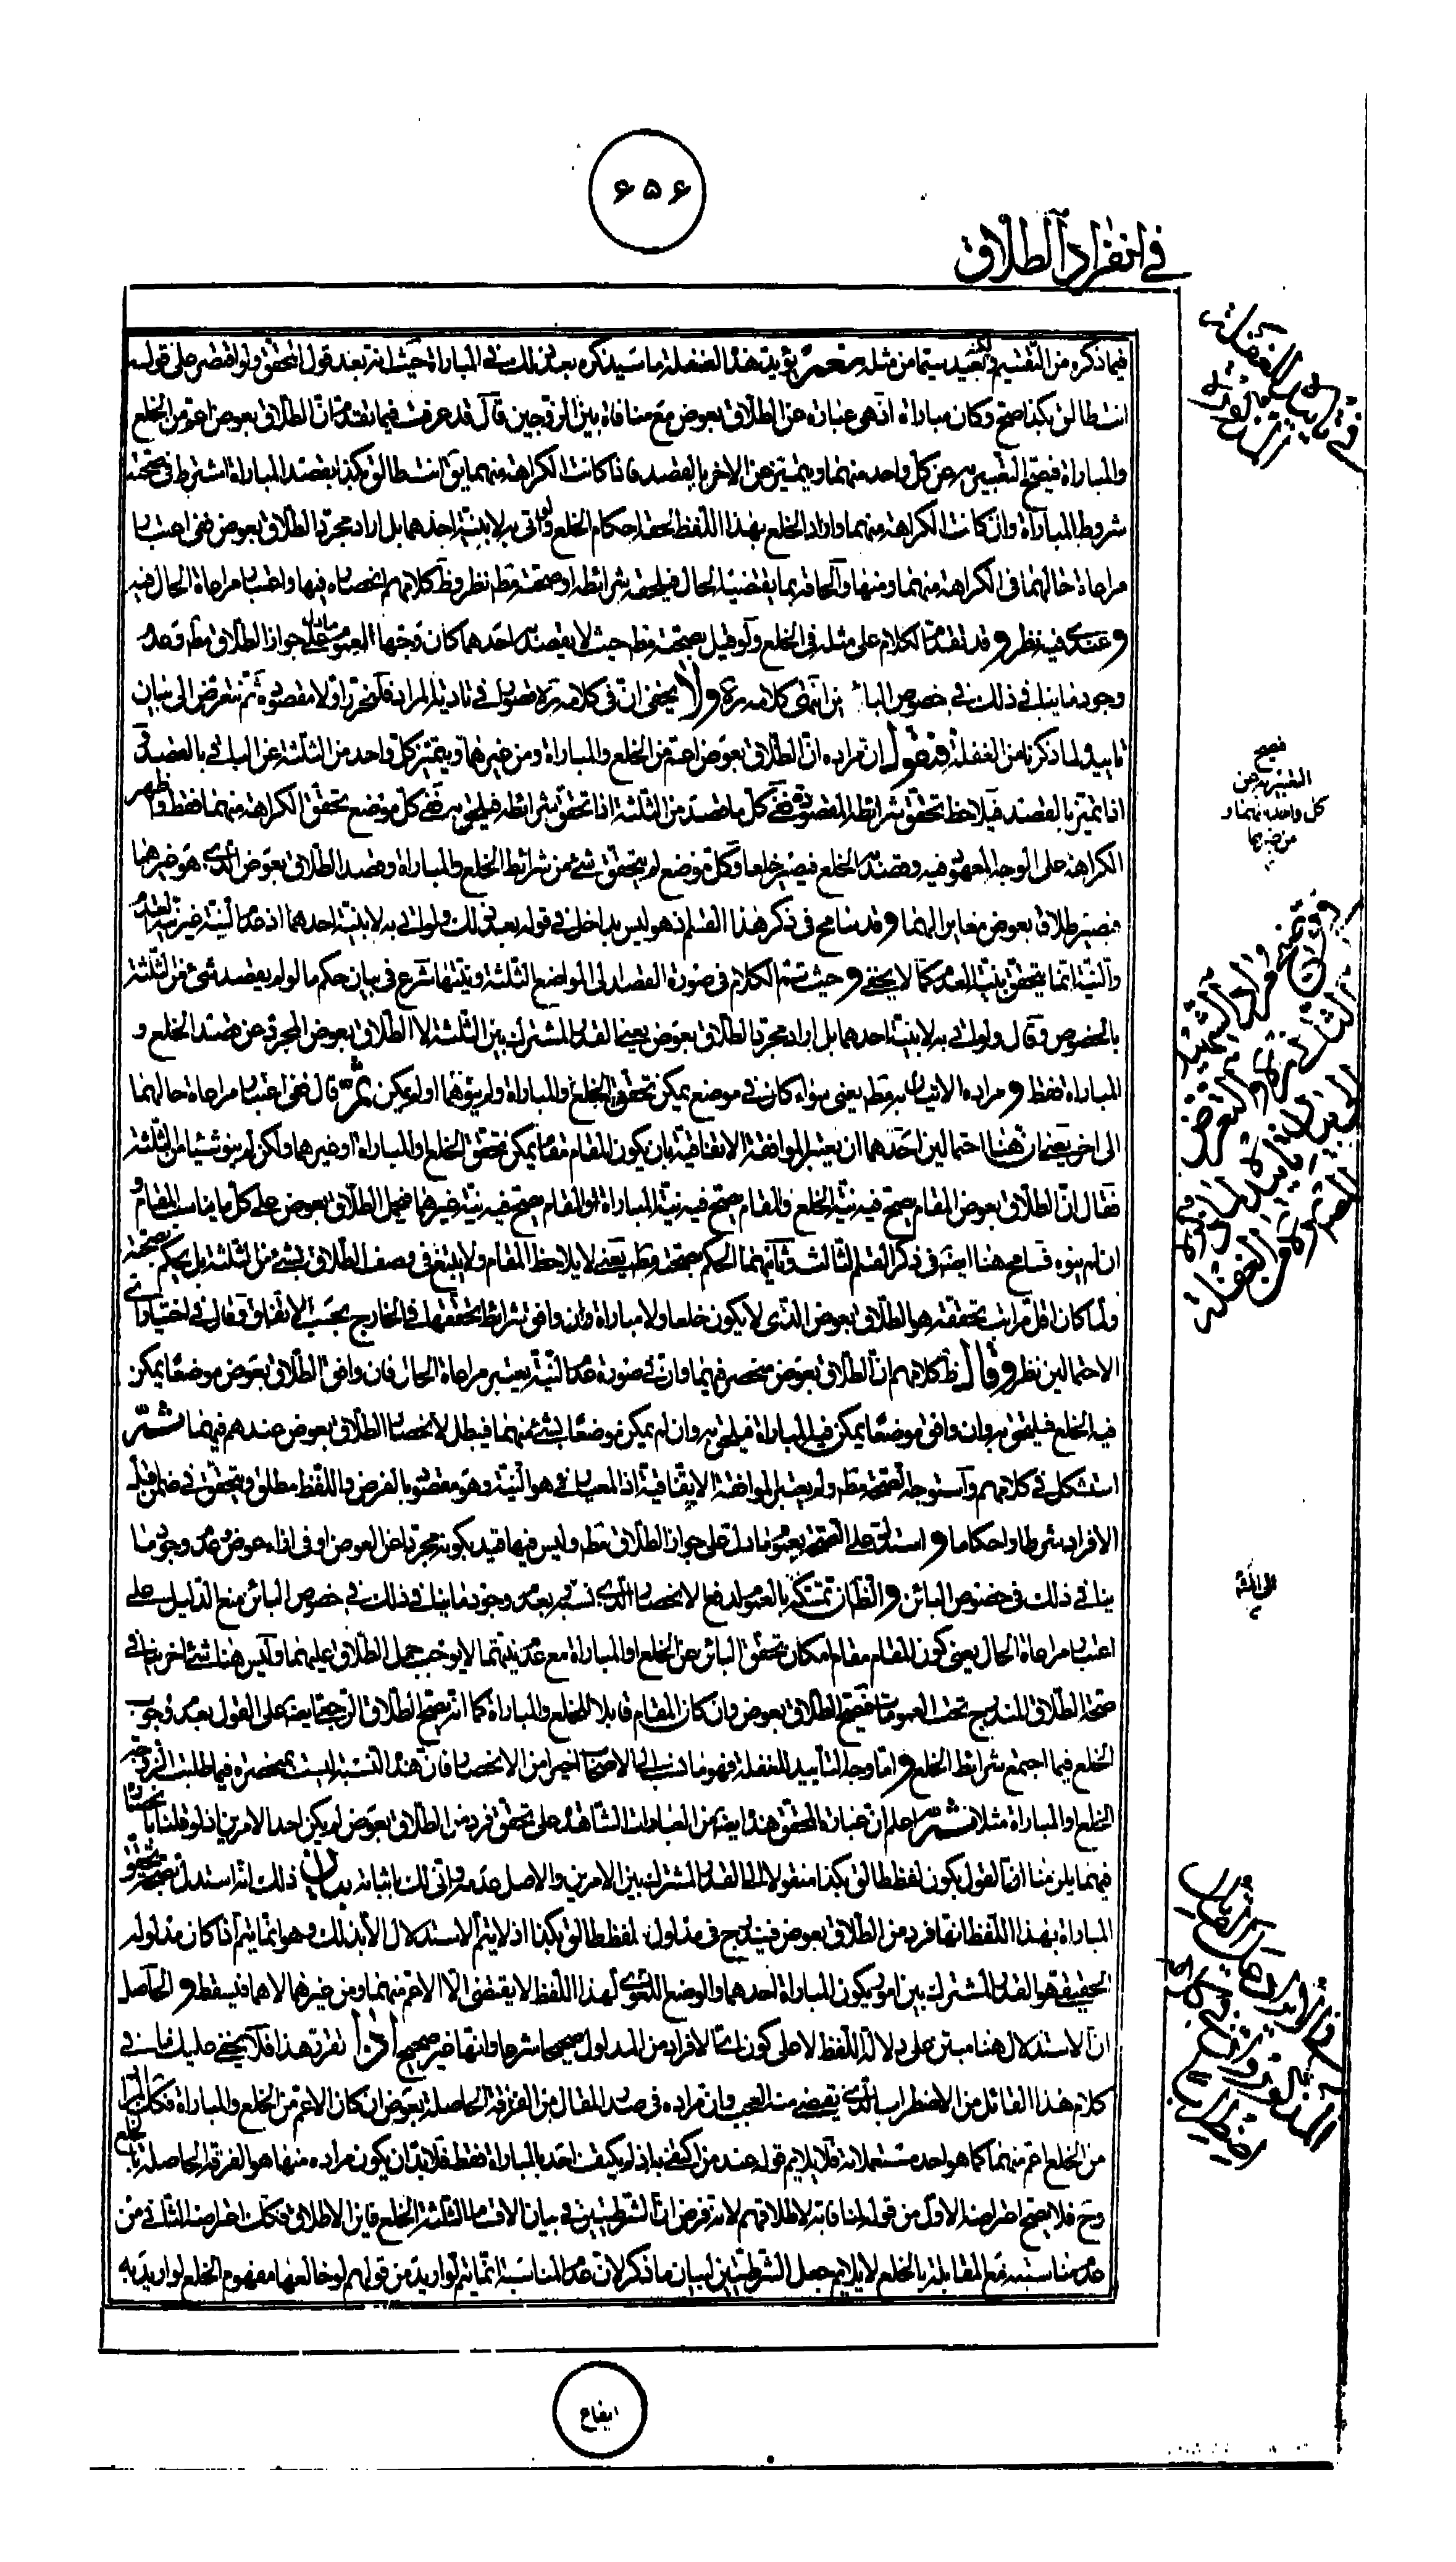 ۶۵۶
في انفراد الطلاق
فيما ذكره من التقسيم ولكنه بعيد سيما من مثله نعم يؤيد هذه الغفلة ما سيذكره بعد ذلك في المباراة حيث انه بعد قول المحقق ولو اقتصر على قوله
انت طالق بكذا صح وكان مباراة اذ هي عبارة عن الطلاق بعوض مع منافاة بين الزوجين قال قد عرفت فيما تقدم ان الطلاق بعوض اعم من الخلع
والمباراة فيصح التعبير به عن كل واحد منهما ويتميز عن الاخر بالقصد فاذا كانت الكراهة منهما يق انت طالق بكذا بقصد المباراة اشترط في صحته
شروط المباراة وان كانت الكراهة منهما واراد الخلع بهذا اللفظ لحقه احكام الخلع ولو اتى به لا بنية احدهما بل اراد مجرد الطلاق بعوض ففي اعتبار
مراعاة حالهما في الكراهة منهما ومنها والحاقه بما يقتضيه الحال فيلحقه شرائطه او صحته مطم نظر وظ كلامهم انحصاره فيها واعتبار مراعاة الحال فيه
وعندي فيه نظر وقد تقدم الكلام على مثله في الخلع ولو قيل بصحته مطم حيث لا يقصد به احدهما كان وجها لعموم ما دل على جواز الطلاق مطم وعدم
وجود ما ينافي ذلك في خصوص البائن انتهى كلامه ره ولا يخفى ان في كلامه ره قصورا في تادية المراد فلنحرر اولا مقصوده ثم نتعرض الى بيان
تاييده لما ذكرنا من الغفلة فنقول ان مراده ان الطلاق بعوض اعم من الخلع والمباراة ومن غيرهما ويتميز كل واحد من الثلثة عن الباقي بالقصد في
اذا تميز بالقصد فيلاحظ تحقق شرائط المقصود ففي كل ما قصد من الثلثة اذا تحقق شرائطه فيلحق به ففي كل موضع تحقق الكراهة منهما فقط واظهر
الكراهة على الوجه المعهود فيه وقصد به الخلع فيصير خلعا وكل موضع لم يتحقق شئ من شرائط الخلع والمباراة وقصد الطلاق بعوض الذي هو غيرهما
فيصير طلاق بعوض مغاير الهما وقد سامح في ذكر هذا القسم اذ هو ليس بداخل في قوله بعد ذلك ولو اتى به لا بنية احدهما اذ عدم النية غير نية العدم
والنية انما يتحقق بنية العدم كما لا يخفى وحيث تم الكلام في صورة القصد الى المواضع الثلثة ونيتها شرع في بيان حكم ما لو لم يقصد شئ من الثلثة
بالخصوص وقال ولو اتى به لا بنية احدهما بل اراد مجرد الطلاق بعوض يعني القدر المشترك بين الثلثة لا الطلاق بعوض المجرد عن قصد الخلع و
المباراة فقط ومراده الاتيان به مطم يعني سواء كان في موضع يمكن تحقق الخلع والمباراة ولم ينوهما او لم يكن ثم قال ففي اعتبار مراعاة حالهما
الى اخره يعني ان هنا احتمالين احدهما ان يعتبر الموافقة الاتفاقية بان يكون المقام مقاما يمكن تحقق الخلع او المباراة او غيرهما ولكن لم ينو شيئا من الثلثة
فقال ان الطلاق بعوض المقام يصح فيه نية الخلع والمقام يصح فيه نية المباراة او المقام يصح فيه نية غيرهما فيحمل الطلاق بعوض على كل ما يناسب المقام و
ان لم ينوه فسامح هنا ايضا في ذكر القسم الثالث وثانيهما الحكم بصحته مطم يعني لا يلاحظ المقام ولا يلتفت في وصف الطلاق بشئ من الثلثة بل يحكم بصحته
ولما كان اقل مراتب تحققه هو الطلاق بعوض الذي لا يكون خلعا ولا مباراة وان وافق شرائط تحققها في الخارج بحسب الاتفاق وقال في اختيار اي
الاحتمالين نظر وقال ظ كلامهم ان الطلاق بعوض منحصر فيهما وان في صورة عدم النية يعتبر مراعاة الحال فان وافق الطلاق بعوض موضعا يمكن
فيه الخلع فيلحق به وان وافق موضعا يمكن فيه المباراة فيلحق به وان لم يمكن موضعا لشئ منهما فيبطل لانحصار الطلاق بعوض عندهم فيهما ثم
استشكل في كلامهم واستوجه الصحة مطم ولم يعتبر الموافقة الاتفاقية اذ المعيار هو النية وهو مفقود بالفرض واللفظ مطلق ويتحقق في ضمن اقل
الافراد شرطا واحكاما واستدل على الصحة بعموم ما دل على جواز الطلاق مطم وليس فيها قيد بكونه مجردا عن العوض او في ازاء عوض وعدم وجود ما
ينافي ذلك في خصوص البائن والظ ان تمسكه بالعموم لدفع الانحصار الذي نسبه وبعدم وجود ما ينافي ذلك في خصوص البائن منع الدليل على
اعتبار مراعاة الحال يعني كون المقام مقام امكان تحقق البائن عن الخلع او المباراة مع عدم نيتهما لا يوجب حمل الطلاق عليهما وليس هنا شئ اخر ينافي
صحة الطلاق المندرج تحت العمومات فيصح الطلاق بعوض وان كان المقام قابلا للخلع والمباراة كما انه يصح الطلاق الرجعي ايضا على القول بعدم وجوب
الخلع فيما اجتمع شرائط الخلع واما وجه التأييد للغفلة فهو ما نسبه الى الاصحاب اخيرا من الانحصار فان هذه النسبة ليست بمنحصرة فيما طلبت الزوجة
الخلع او المباراة مثلا ثم اعلم ان عبارة المحقق هذه ايضا من العبارات الشاهدة على تحقق فرد من الطلاق بعوض لم يكن احد الامرين اذ لو قلنا بانحصاره
فيهما يلزمنا القول بكون لفظ طالق بكذا منقولا الى القدر المشترك بين الامرين والاصل عدمه واني لك باثباته بيان ذلك انه استدل بصحة تحقق
المباراة بهذا اللفظ انها فرد من الطلاق بعوض فيندرج في مدلول لفظ طالق بكذا اذ لا يتم الاستدلال الا بذلك وهو انما يتم اذا كان مدلوله
الحقيقي هو القدر المشترك بين امور يكون المباراة احدها والوضع اللغوي لهذا اللفظ لا يقتضي الا الاعم منهما ومن غيرهما لا هما فيسقط والحاصل
ان الاستدلال هنا مبتن على دلالة اللفظ لا على كون اي الافراد من المدلول صحيحا شرعا وايها غير صحيح اذا تقرر هذا فلا يخفى عليك ما في
كلام هذا القائل من الاضطراب الذي يقضي منه العجب وان مراده في صدر المقال من الفرقة الحاصلة بعوض ان كان الاعم من الخلع والمباراة فكان المراد
من الخلع اعم منهما كما هو احد مستعملاته فلا يلايم قوله عند من يكتفي به اذ لم يكتف احد بالمباراة فقط فلا بد ان يكون مراده منها هو الفرقة الحاصلة بالخلع
وح فلا يصح اعتراضه الاول من قوله لمنافاته لاطلاقهم لانه فرض ان الشرطيتين في بيان الاقسام الثلثة للخلع فاين الاطلاق وكك اعتراضه الثاني من
عدم مناسبته مع المقابلة بالخلع لا يلايم جعل الشرطيتين لبيان ما ذكر لان عدم المناسبة انما يتم لو اريد من قولهم لو خالعها مفهوم الخلع لو اريد به
في تاييد الغفلة المذكورة
فيصح
التعبير به عن
كل واحد منهما و
من غيرهما
على المشهور
في الايراد على القائل
المذكور وان في كلامه
اضطراب
ايضاح